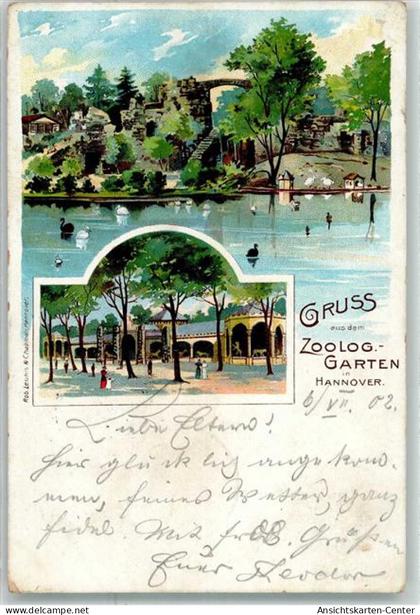 GRUSS
aus dem
ZOOLOG.-
GARTEN
in
HANNOVER.
Rob. Leunis & Chapman, Hannover.
6/VII. 02.
Liebe Eltern!
Hier glücklich angekom-
men, feines Wetter, ganz
fidel. Mit Grüßen
Euer Teodor
www.delcampe.net
Ansichtskarten-Center